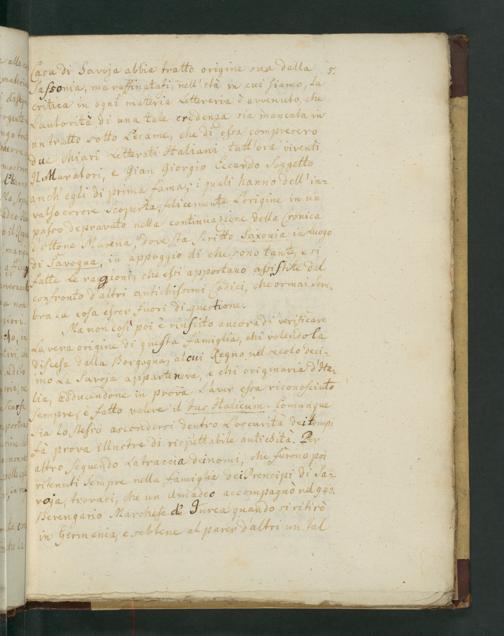 Casa di Savoja abbia tratto origine sua dalla 5.
Sassonia, ma raffinatasi, nell'età in cui siamo, la
critica in ogni materia letteraria è avvenuto, che
l'autorità di una tale credenza sia mancata in
un tratto sotto l'esame, che di essa
due chiari Letterati Italiani tutt'ora viventi
Il Muratori, e Gian Giorgio Eccardo Soggetto
anch'egli di prima fama; i quali hanno dell'in-
valso errore scoperta felicemente l'origine in un
passo depravato nella continuazione della Cronica
d'Ottone Morena, dove sta scritto Saxonia in luogo
di Savogna, in appoggio di che sono tante, e sì
fatte le ragioni, che essi apportano assistite dal
confronto d'altri antichissimi Codici, che ormai sem-
bra la cosa esser fuori di questione.
Ma non così poi è riuscito ancora di verificare
la vera origine di questa famiglia, chi volendola
discesa dalla Borgogna, al cui Regno nel secolo deci-
mo la Savoja apparteneva, e chi originaria d'Ita-
lia, adducendone in prova l'aver essa riconosciuto
sempre, e fatto valere il Jus Italicum. Comunque
sia lo stesso ascondersi dentro l'oscurità dei tempi
fa prova illustre di rispettabile antichità. Per
altro seguendo la traccia dei nomi, che furono poi
ritenuti sempre nella famiglia dei Prencipi di Sa-
voja, trovasi, che un Amadeo accompagnò nel 940.
Berengario Marchese d'Ivrea quando si ritirò
in Germania, e sebbene al parer d'altri un tal